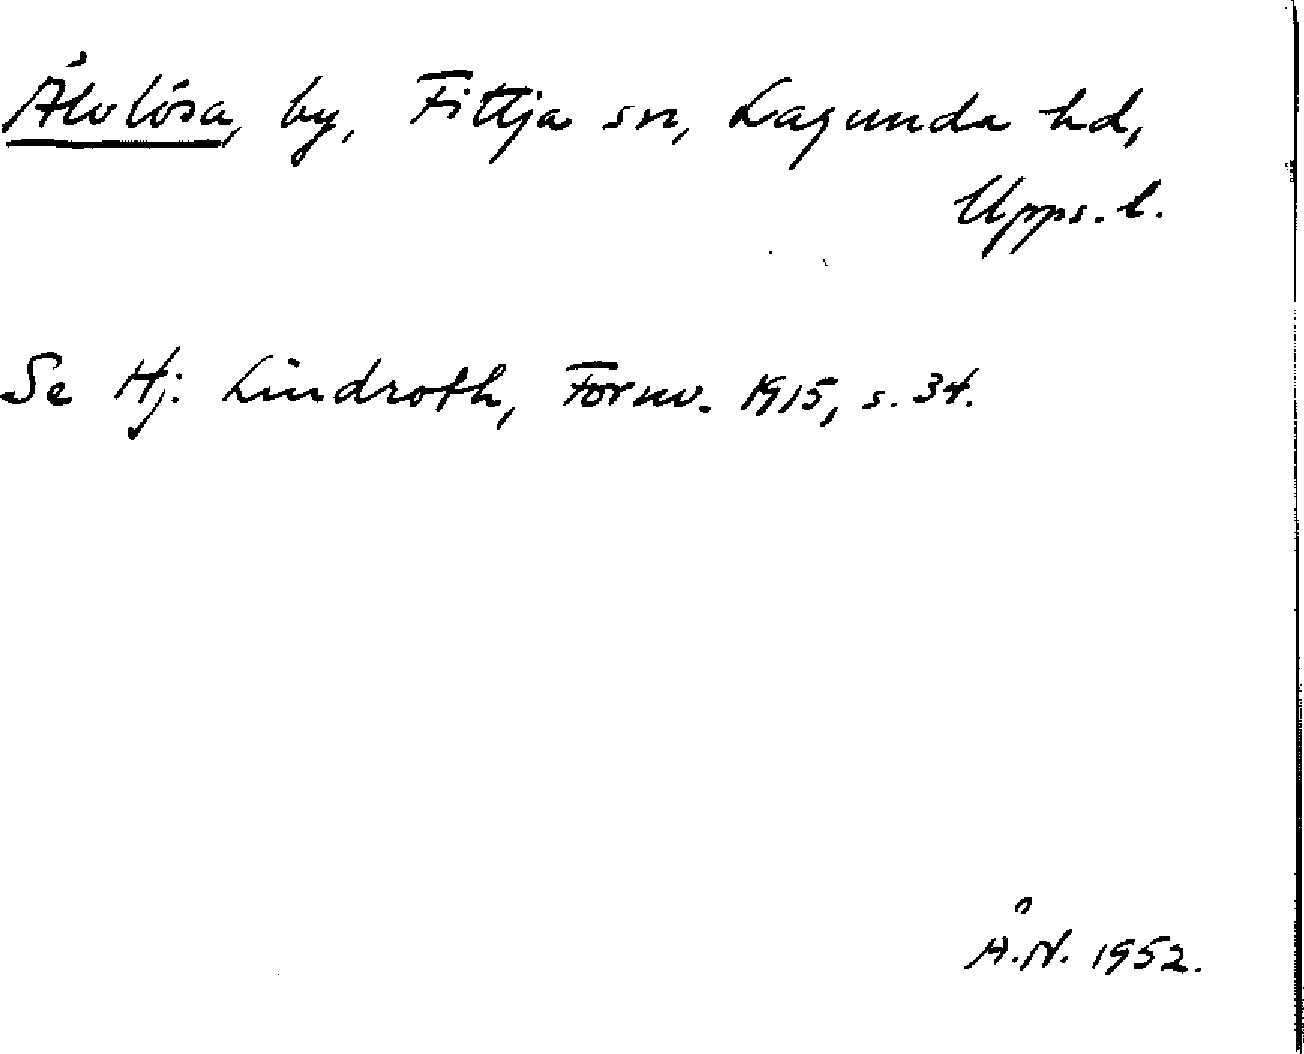 Älvlösa, by, Fittja sn, Lagunda hd,
Upps. l.
Se Hj. Lindroth, Fornv. 1915, s. 34.
Å.N. 1952.